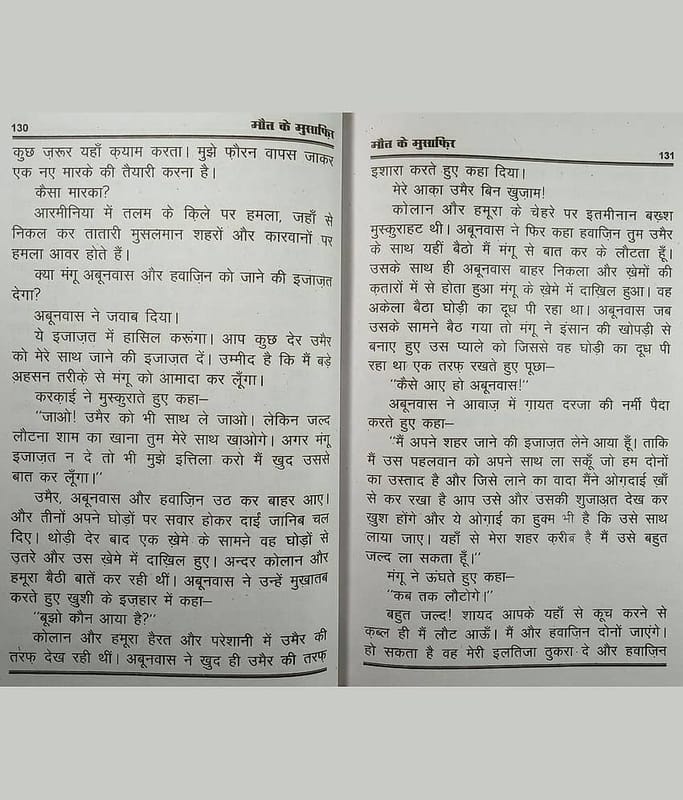 130
मौत के मुसाफ़िर
कुछ ज़रूर यहाँ क़याम करता। मुझे फौरन वापस जाकर
एक नए मारके की तैयारी करना है।
कैसा मारका?
आरमीनिया में तलम के क़िले पर हमला, जहाँ से
निकल कर तातारी मुसलमान शहरों और कारवानों पर
हमला आवर होते हैं।
क्या मंगू अबूनवास और हवाज़िन को जाने की इजाज़त
देगा?
अबूनवास ने जवाब दिया।
ये इजाज़त में हासिल करूंगा। आप कुछ देर उमैर
को मेरे साथ जाने की इजाज़त दें। उम्मीद है कि मैं बड़े
अहसन तरीक़े से मंगू को आमादा कर लूँगा।
करक़ाई ने मुस्कुराते हुए कहा—
“जाओ! उमैर को भी साथ ले जाओ। लेकिन जल्द
लौटना शाम का खाना तुम मेरे साथ खाओगे। अगर मंगू
इजाज़त न दे तो भी मुझे इत्तिला करो मैं खुद उससे
बात कर लूँगा।”
उमैर, अबूनवास और हवाज़िन उठ कर बाहर आए।
और तीनों अपने घोड़ों पर सवार होकर दाईं जानिब चल
दिए। थोड़ी देर बाद एक ख़ेमे के सामने वह घोड़ों से
उतरे और उस खेमे में दाख़िल हुए। अन्दर कोलान और
हमूरा बैठी बातें कर रही थीं। अबूनवास ने उन्हें मुख़ातब
करते हुए ख़ुशी के इज़हार में कहा—
“बूझो कौन आया है?”
कोलान और हमूरा हैरत और परेशानी में उमैर की
तरफ़ देख रही थीं। अबूनवास ने खुद ही उमैर की तरफ़
मौत के मुसाफ़िर
131
इशारा करते हुए कहा दिया।
मेरे आक़ा उमैर बिन खुज़ाम!
कोलान और हमूरा के चेहरे पर इतमीनान बख़्श
मुस्कुराहट थी। अबूनवास ने फिर कहा हवाज़िन तुम उमैर
के साथ यहीं बैठो मैं मंगू से बात कर के लौटता हूँ।
उसके साथ ही अबूनवास बाहर निकला और ख़ेमों की
क़तारों में से होता हुआ मंगू के ख़ेमे में दाख़िल हुआ। वह
अकेला बैठा घोड़ी का दूध पी रहा था। अबूनवास जब
उसके सामने बैठ गया तो मंगू ने इंसान की खोपड़ी से
बनाए हुए उस प्याले को जिससे वह घोड़ी का दूध पी
रहा था एक तरफ़ रखते हुए पूछा—
“कैसे आए हो अबूनवास!”
अबूनवास ने आवाज़ में ग़ायत दरजा की नर्मी पैदा
करते हुए कहा—
“मैं अपने शहर जाने की इजाज़त लेने आया हूँ। ताकि
मैं उस पहलवान को अपने साथ ला सकूँ जो हम दोनों
का उस्ताद है और जिसे लाने का वादा मैंने ओग़दाई ख़ाँ
से कर रखा है आप उसे और उसकी शुजाअत देख कर
खुश होंगे और ये ओगाई का हुक्म भी है कि उसे साथ
लाया जाए। यहाँ से मेरा शहर क़रीब है मैं उसे बहुत
जल्द ला सकता हूँ।”
मंगू ने ऊंघते हुए कहा—
“कब तक लौटोगे।”
बहुत जल्द! शायद आपके यहाँ से कूच करने से
क़ब्ल ही मैं लौट आऊँ। मैं और हवाज़िन दोनों जाएंगे।
हो सकता है वह मेरी इलतिजा ठुकरा दे और हवाज़िन